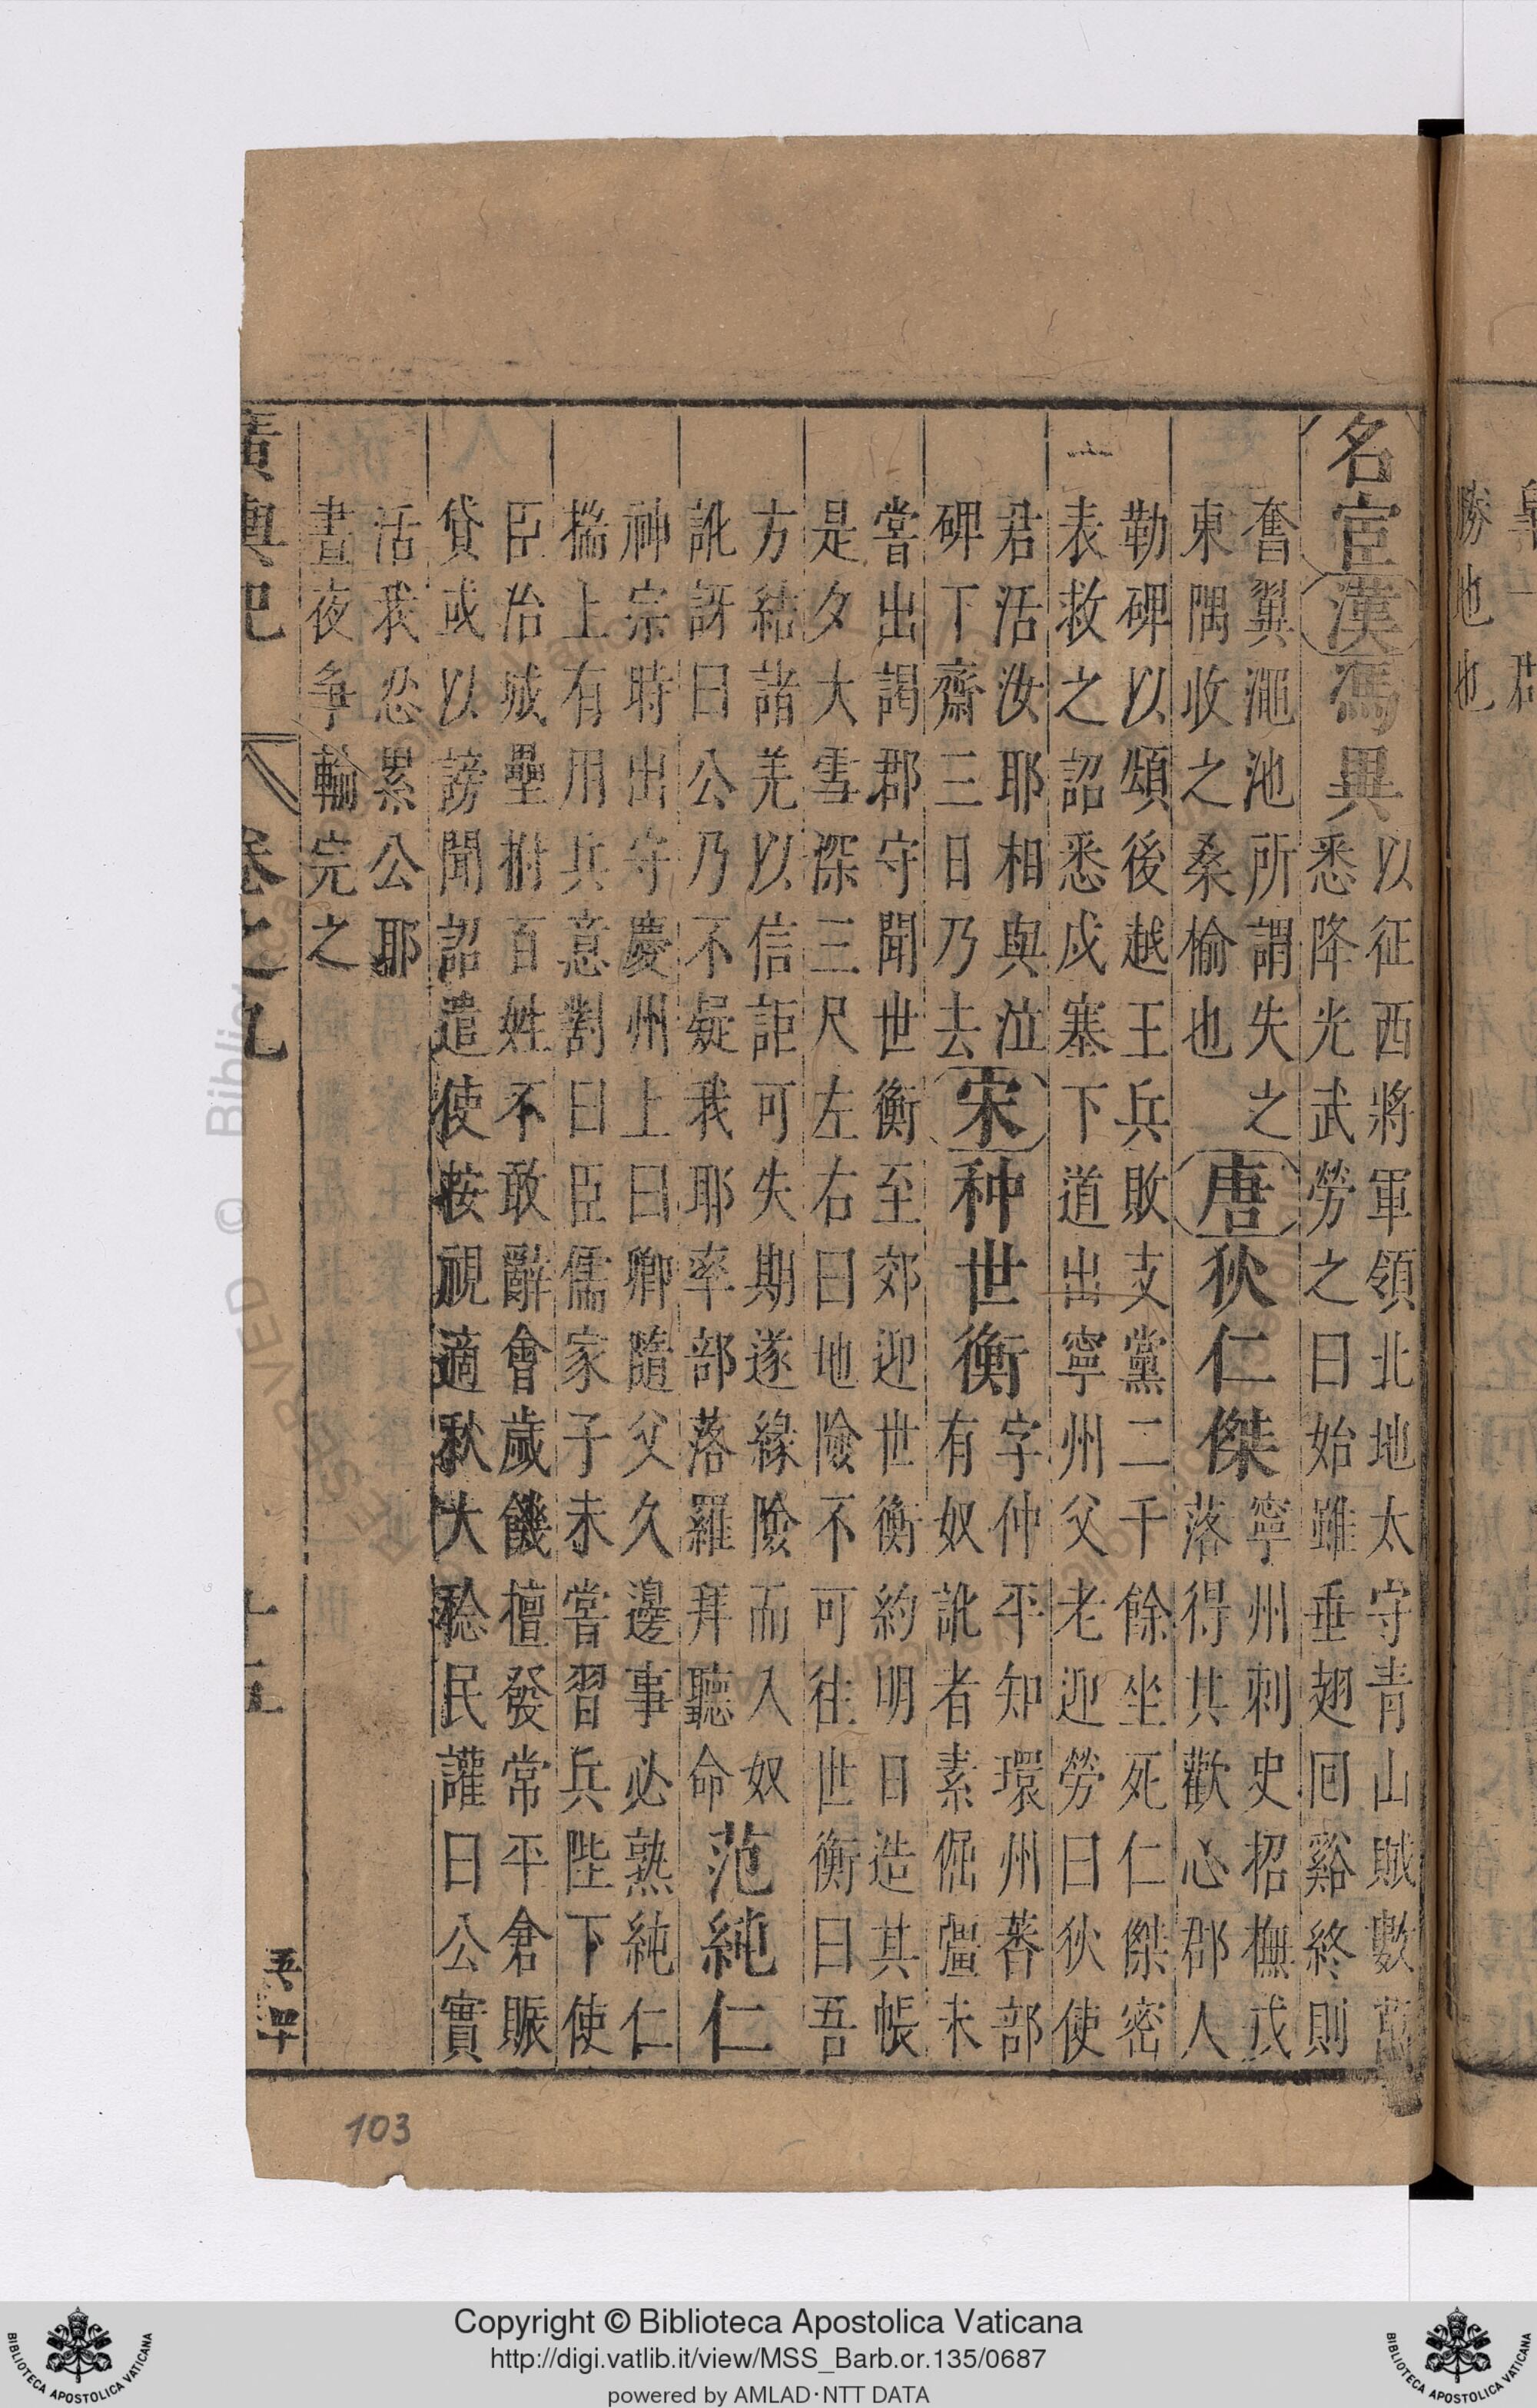 勝地也
名宦 漢 馮異 以征西將軍領北地太守青山賊數萬
悉降光武勞之曰始雖垂翅回谿終則
奮翼澠池所謂失之
東隅收之桑榆也
唐 狄仁傑 寧州刺史招撫戎
落得其歡心郡人
勒碑以頌後越王兵敗支黨二千餘坐死仁傑密
表救之詔悉戍塞下道出寧州父老迎勞曰狄使
君活汝耶相與泣
碑下齋三日乃去
宋 种世衡 字仲平知環州蕃部
有奴訛者素倔彊未
嘗出謁郡守聞世衡至郊迎世衡約明日造其帳
是夕大雪深三尺左右曰地險不可往世衡曰吾
方結諸羌以信詎可失期遂緣險而入奴
訛訝曰公乃不疑我耶率部落羅拜聽命
范純仁
神宗時出守慶州上曰卿隨父久邊事必熟純仁
揣上有用兵意對曰臣儒家子未嘗習兵陛下使
臣治城壘拊百姓不敢辭會歲饑擅發常平倉賑
貸或以謗聞詔遣使按視適秋大稔民讙曰公實
活我忍累公耶
晝夜爭輸完之
廣輿記 卷之九 十五
103
Copyright © Biblioteca Apostolica Vaticana
http://digi.vatlib.it/view/MSS_Barb.or.135/0687
powered by AMLAD·NTT DATA
BIBLIOTECA APOSTOLICA VATICANA
BIBLIOTECA APOSTOLICA VATICANA